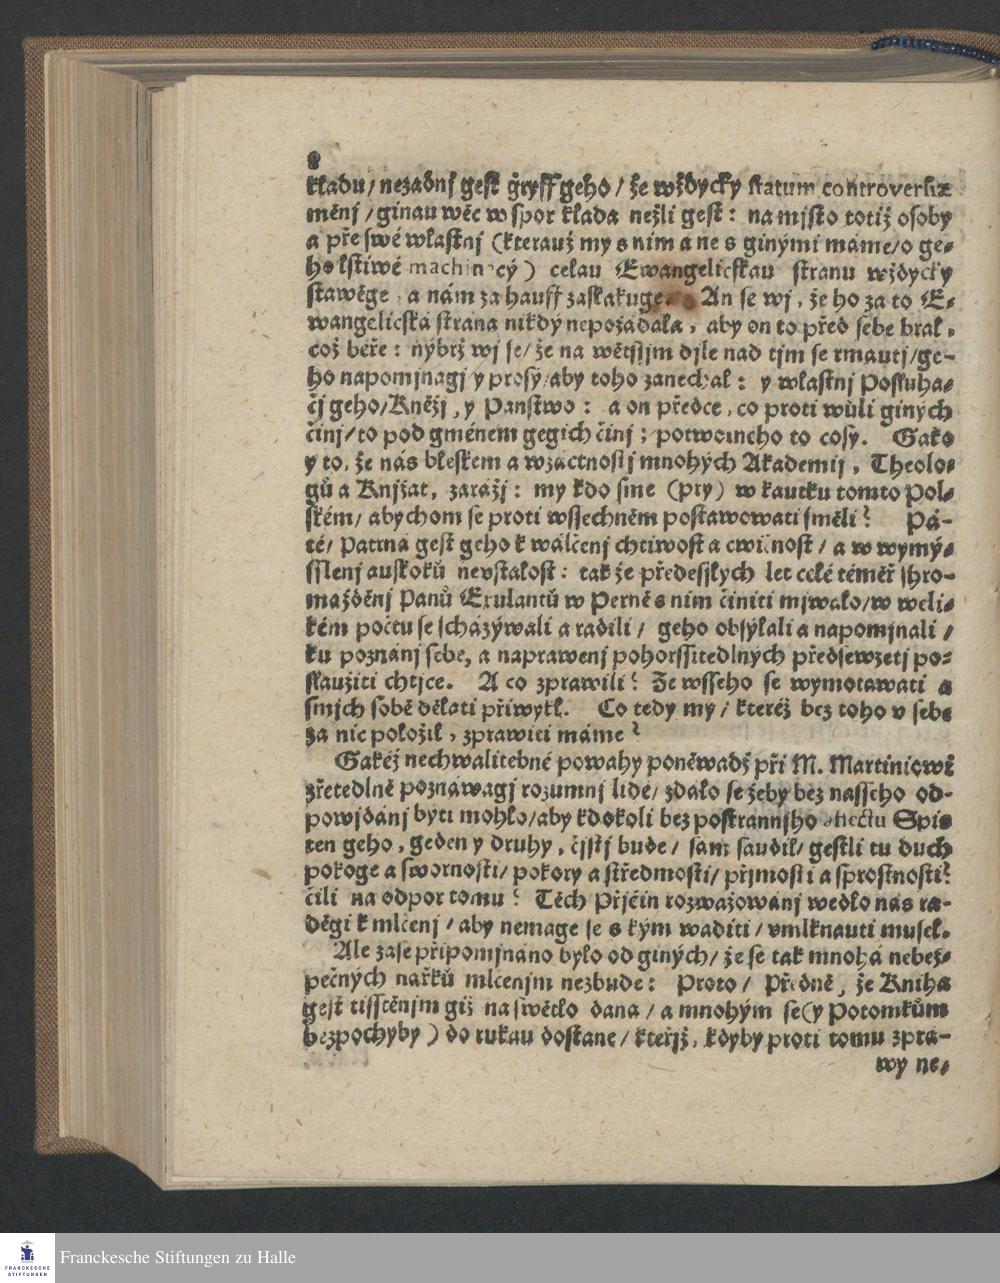 8
kladu/ nezadnj gest gryff geho/ že wždycky statum controversiæ
měnj/ ginau wěc w spor klada nežli gest: na mjsto totiž osoby
a pře swé wlastnj (kterauž my s nim a ne s ginými máme/ o ge-
ho lstiwé machinacý) celau Ewangelickau stranu wždycky
stawěge, a nám za hauff zaskakuge. An se wj, že ho za to E-
wangelicská strana nikdý nepožádala, aby on to před sebe bral,
což béře: nýbrž wj se/ že na wětssjm djle nad tjm se rmautj/ ge-
ho napomjnagj y prosý/ aby toho zanechal: y wlastnj Posluha-
čj geho/ Kněžj, y Panstwo: a on předce, co proti wůli giných
činj/ to pod gménem gegich činj; potworného to cosy. Gako
y to, že nás bleskem a wzáctnostj mnohých Akademij, Theolo-
gů a Knjžat, zarážj: my kdo sme (pry) w kautku tomto Pol-
ském/ abychom se proti wssechněm postawowati směli? Pá-
té/ Patrná gest geho k wálčenj chtiwost a cwičnost/ a w wymý-
sslenj auskoků neustalost: tak že předesslých let celé téměř shro-
mážděnj Panů Exulantů w Perně s nim činiti mjwalo/ w weli-
kém počtu se scházýwali a radili/ geho obsýlali a napomjnali/
ku poznánj sebe, a naprawenj pohorssitedlných předsewzetj po-
slaužiti chtjce. A co zprawili? Ze wsseho se wymotáwati a
smjch sobě dělati přiwykl. Co tedy my/ kteréž bez toho v sebe
za nic položil, zprawiti máme?
Gakéž nechwalitebné powahy poněwadž při M. Martiniowi
zřetedlně poznáwagj rozumnj lidé/ zdálo se žeby bez nasseho od-
powjdánj býti mohlo/ aby kdokoli bez postrannjho affectu Spis
ten geho, geden y druhy, čjstj bude/ sám saudil/ gestli tu duch
pokoge a swornosti/ pokory a středmosti/ přjmosti a sprostnosti?
čili na odpor tomu? Těch Přjčin rozwažowánj wedlo nás ra-
děgi k mlčenj/ aby nemage se s kým waditi/ vmlknauti musel.
Ale zase připomjnáno bylo od giných/ že se tak mnohá nebez-
pečných nařků mlčenjm nezbude: Proto/ Předně, že Kniha
gest tisstěnjm giž na swětlo dana/ a mnohým se (y Potomkům
bezpochyby) do rukau dostane/ kteřjž, kdyby proti tomu zpra-
wy ne-
Franckesche Stiftungen zu Halle
FRANCKESCHE
STIFTUNGEN